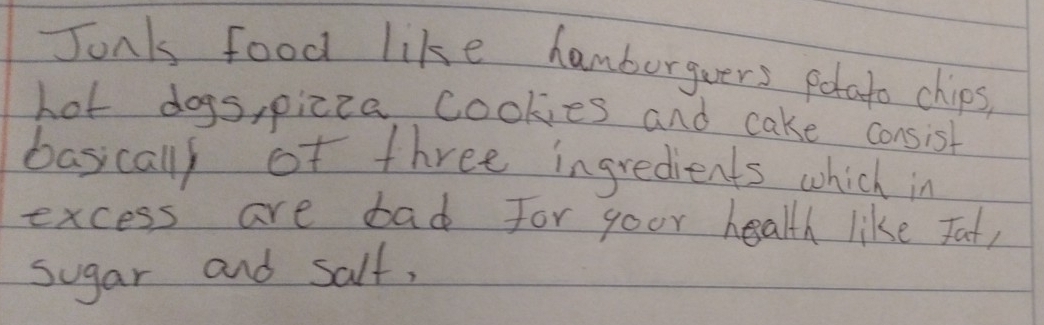 Junk food like hamburguers potato chips,
hot dogs, pizza cookies and cake consist
basically of three ingredients which in
excess are bad for your health like fat,
sugar and salt.